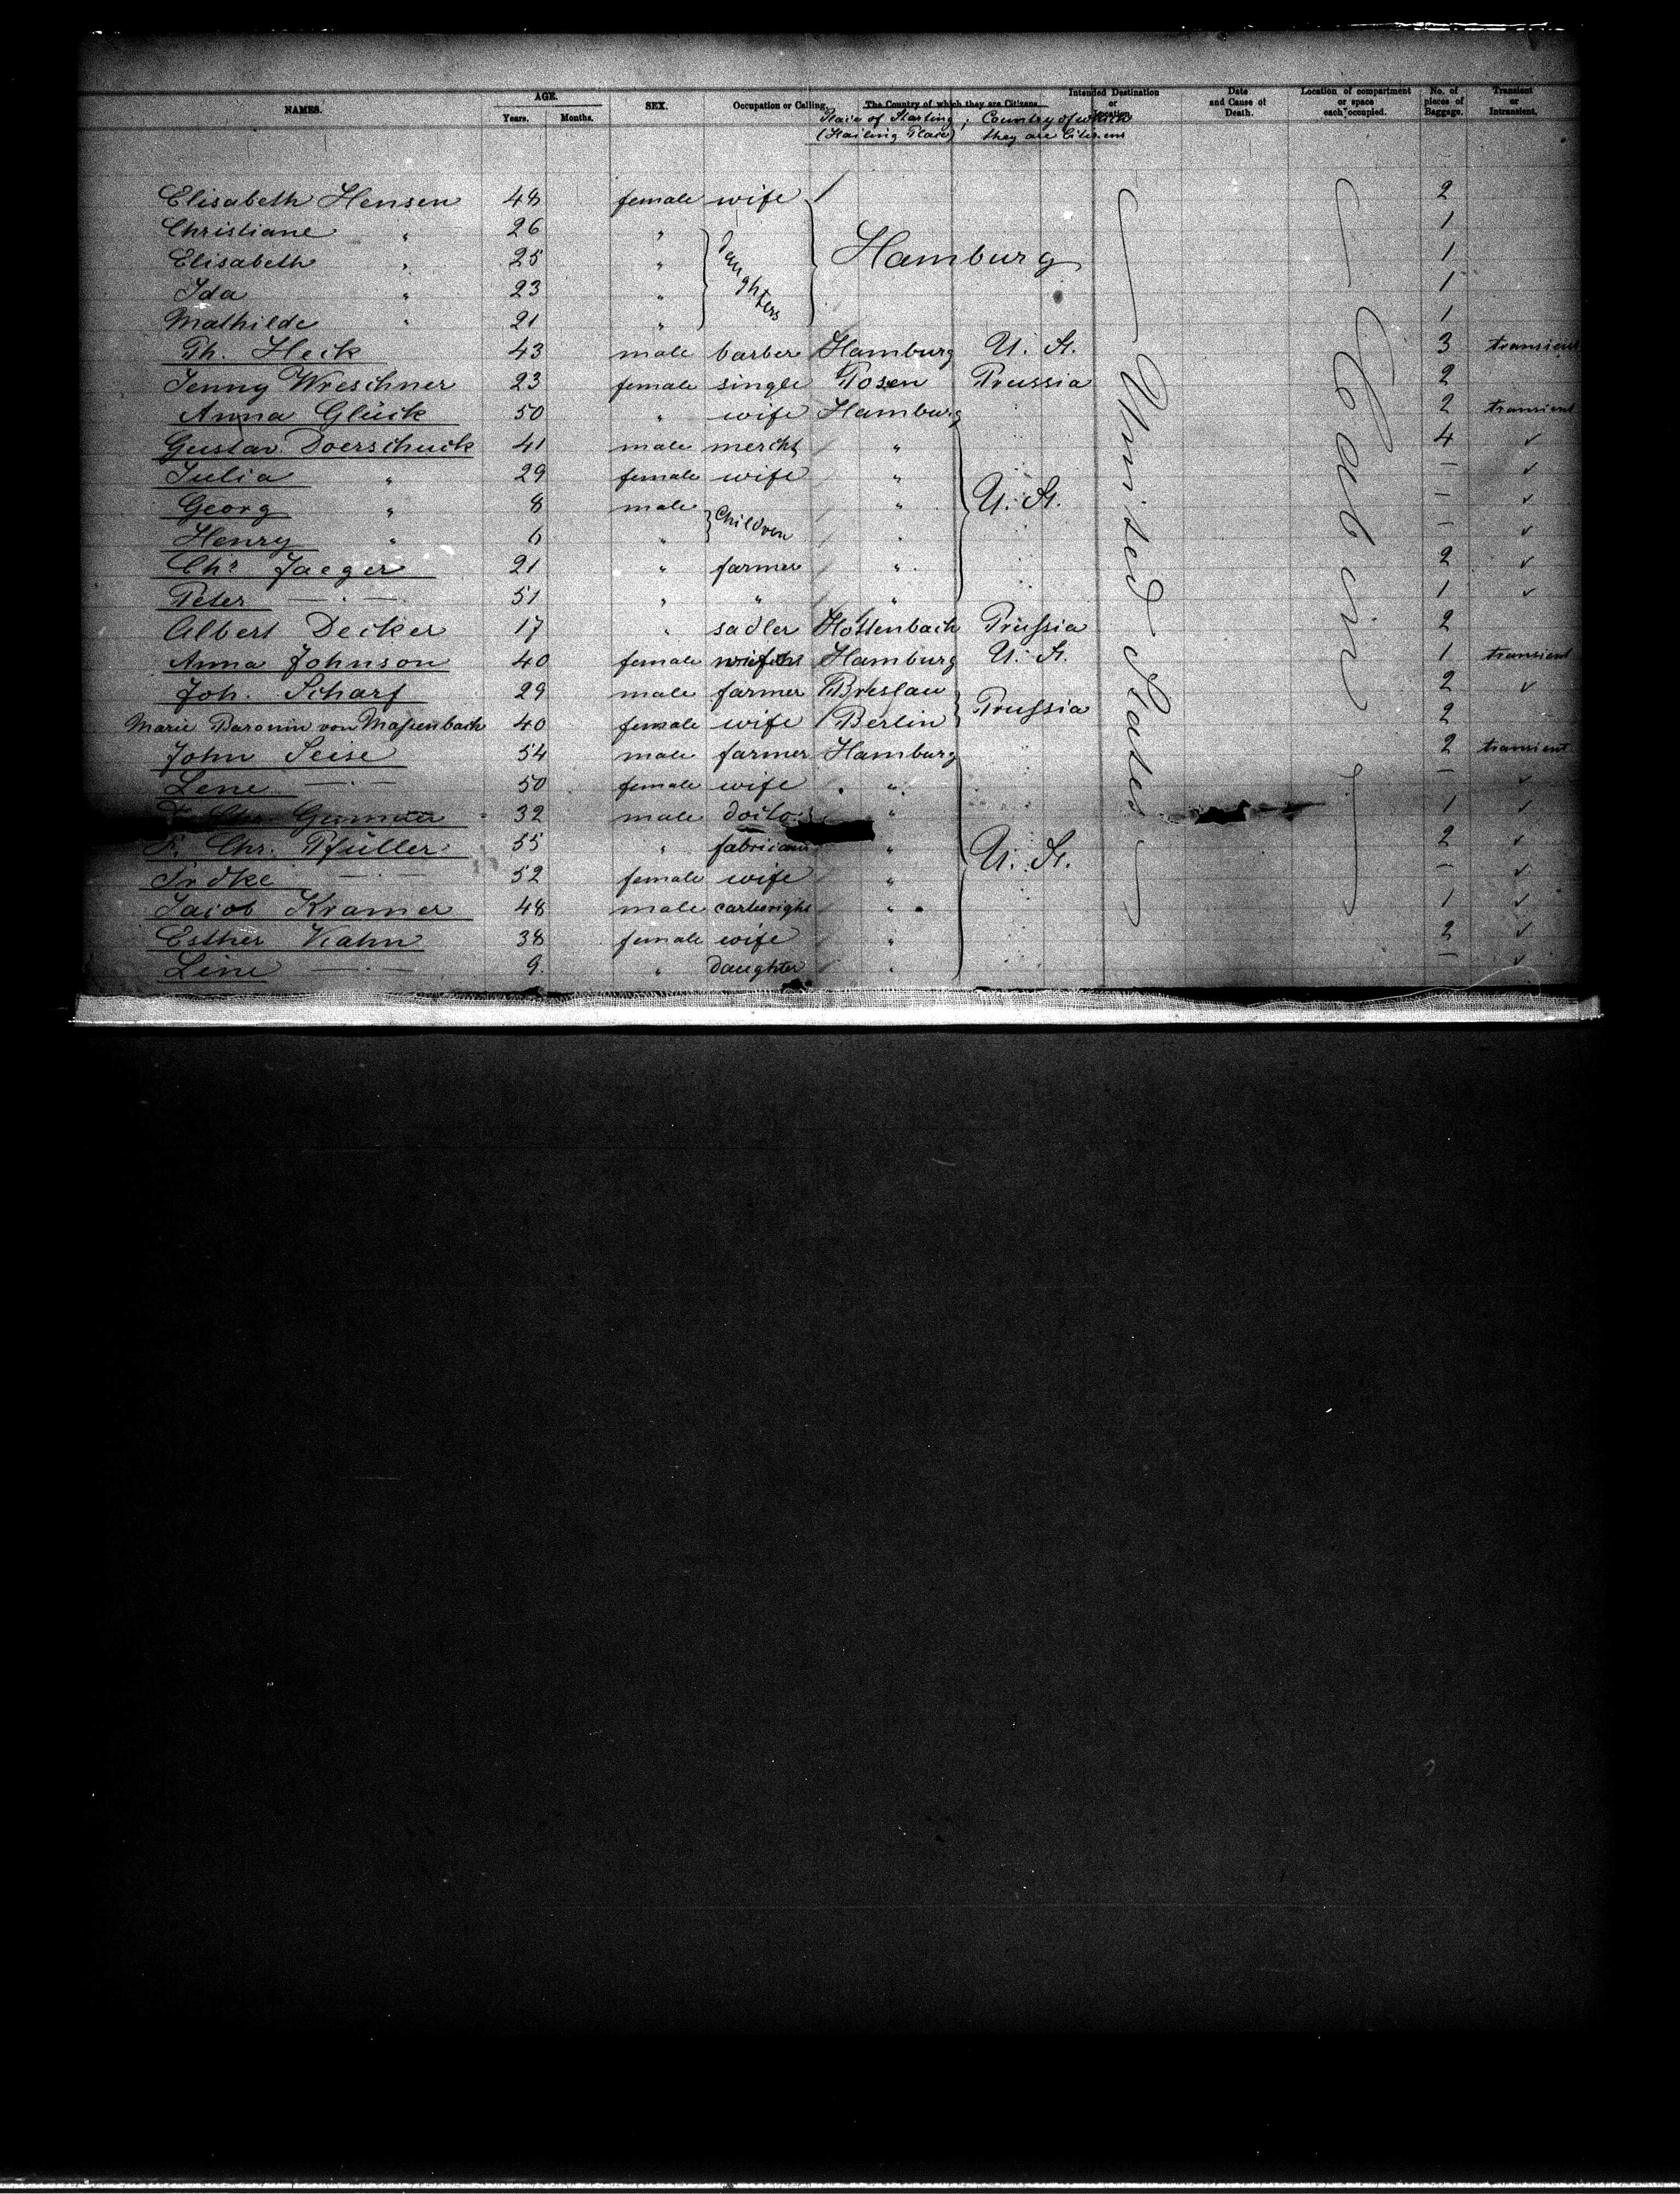 NAMES. AGE. Years. Months. SEX. Occupation or Calling. The Country of which they are Citizens. Intended Destination or Location. Date and Cause of Death. Location of compartment or space each occupied. No. of pieces of Baggage. Transient or Intransient.
Place of Starting ; Country of which
(Hailing Place) they are Citizens
Elisabeth Hensen 48 female wife 2
Christiane " 26 " 1
Elisabeth " 25 " daughters Hamburg 1
Ida " 23 " 1
Mathilde " 21 " 1
Th. Heck 43 male barber Hamburg U. St. 3 transient
Jenny Wreschner 23 female single Posen Prussia 2
Anna Glück 50 " wife Hamburg 2 transient
Gustav Doerschuck 41 male mercht " 4 ✓
Julia " 29 female wife " — ✓
Georg " 8 male Children " U. St. — ✓
Henry " 6 " " — ✓
Chs Jaeger 21 " farmer " 2 ✓
Peter —"— 51 " " " 1 ✓
Albert Decker 17 " sadler Hottenbach Prussia 2
Anna Johnson 40 female Hamburg U. St. 1 transient
Joh. Scharf 29 male farmer Breslau 2 ✓
Marie Baronin von Massenbach 40 female wife Berlin Prussia 2
John Seise 54 male farmer Hamburg 2 transient
Lene —"— 50 female wife " — ✓
32 male doctor " 1 ✓
F. Chr. Pfüller 55 " " U. St. 2 ✓
—"— 52 female wife " — ✓
Jacob Kramer 48 male cartwright " 1 ✓
Esther Kahn 38 female wife " 2 ✓
Line —"— 9 " daughter " — ✓
United States
Cabin